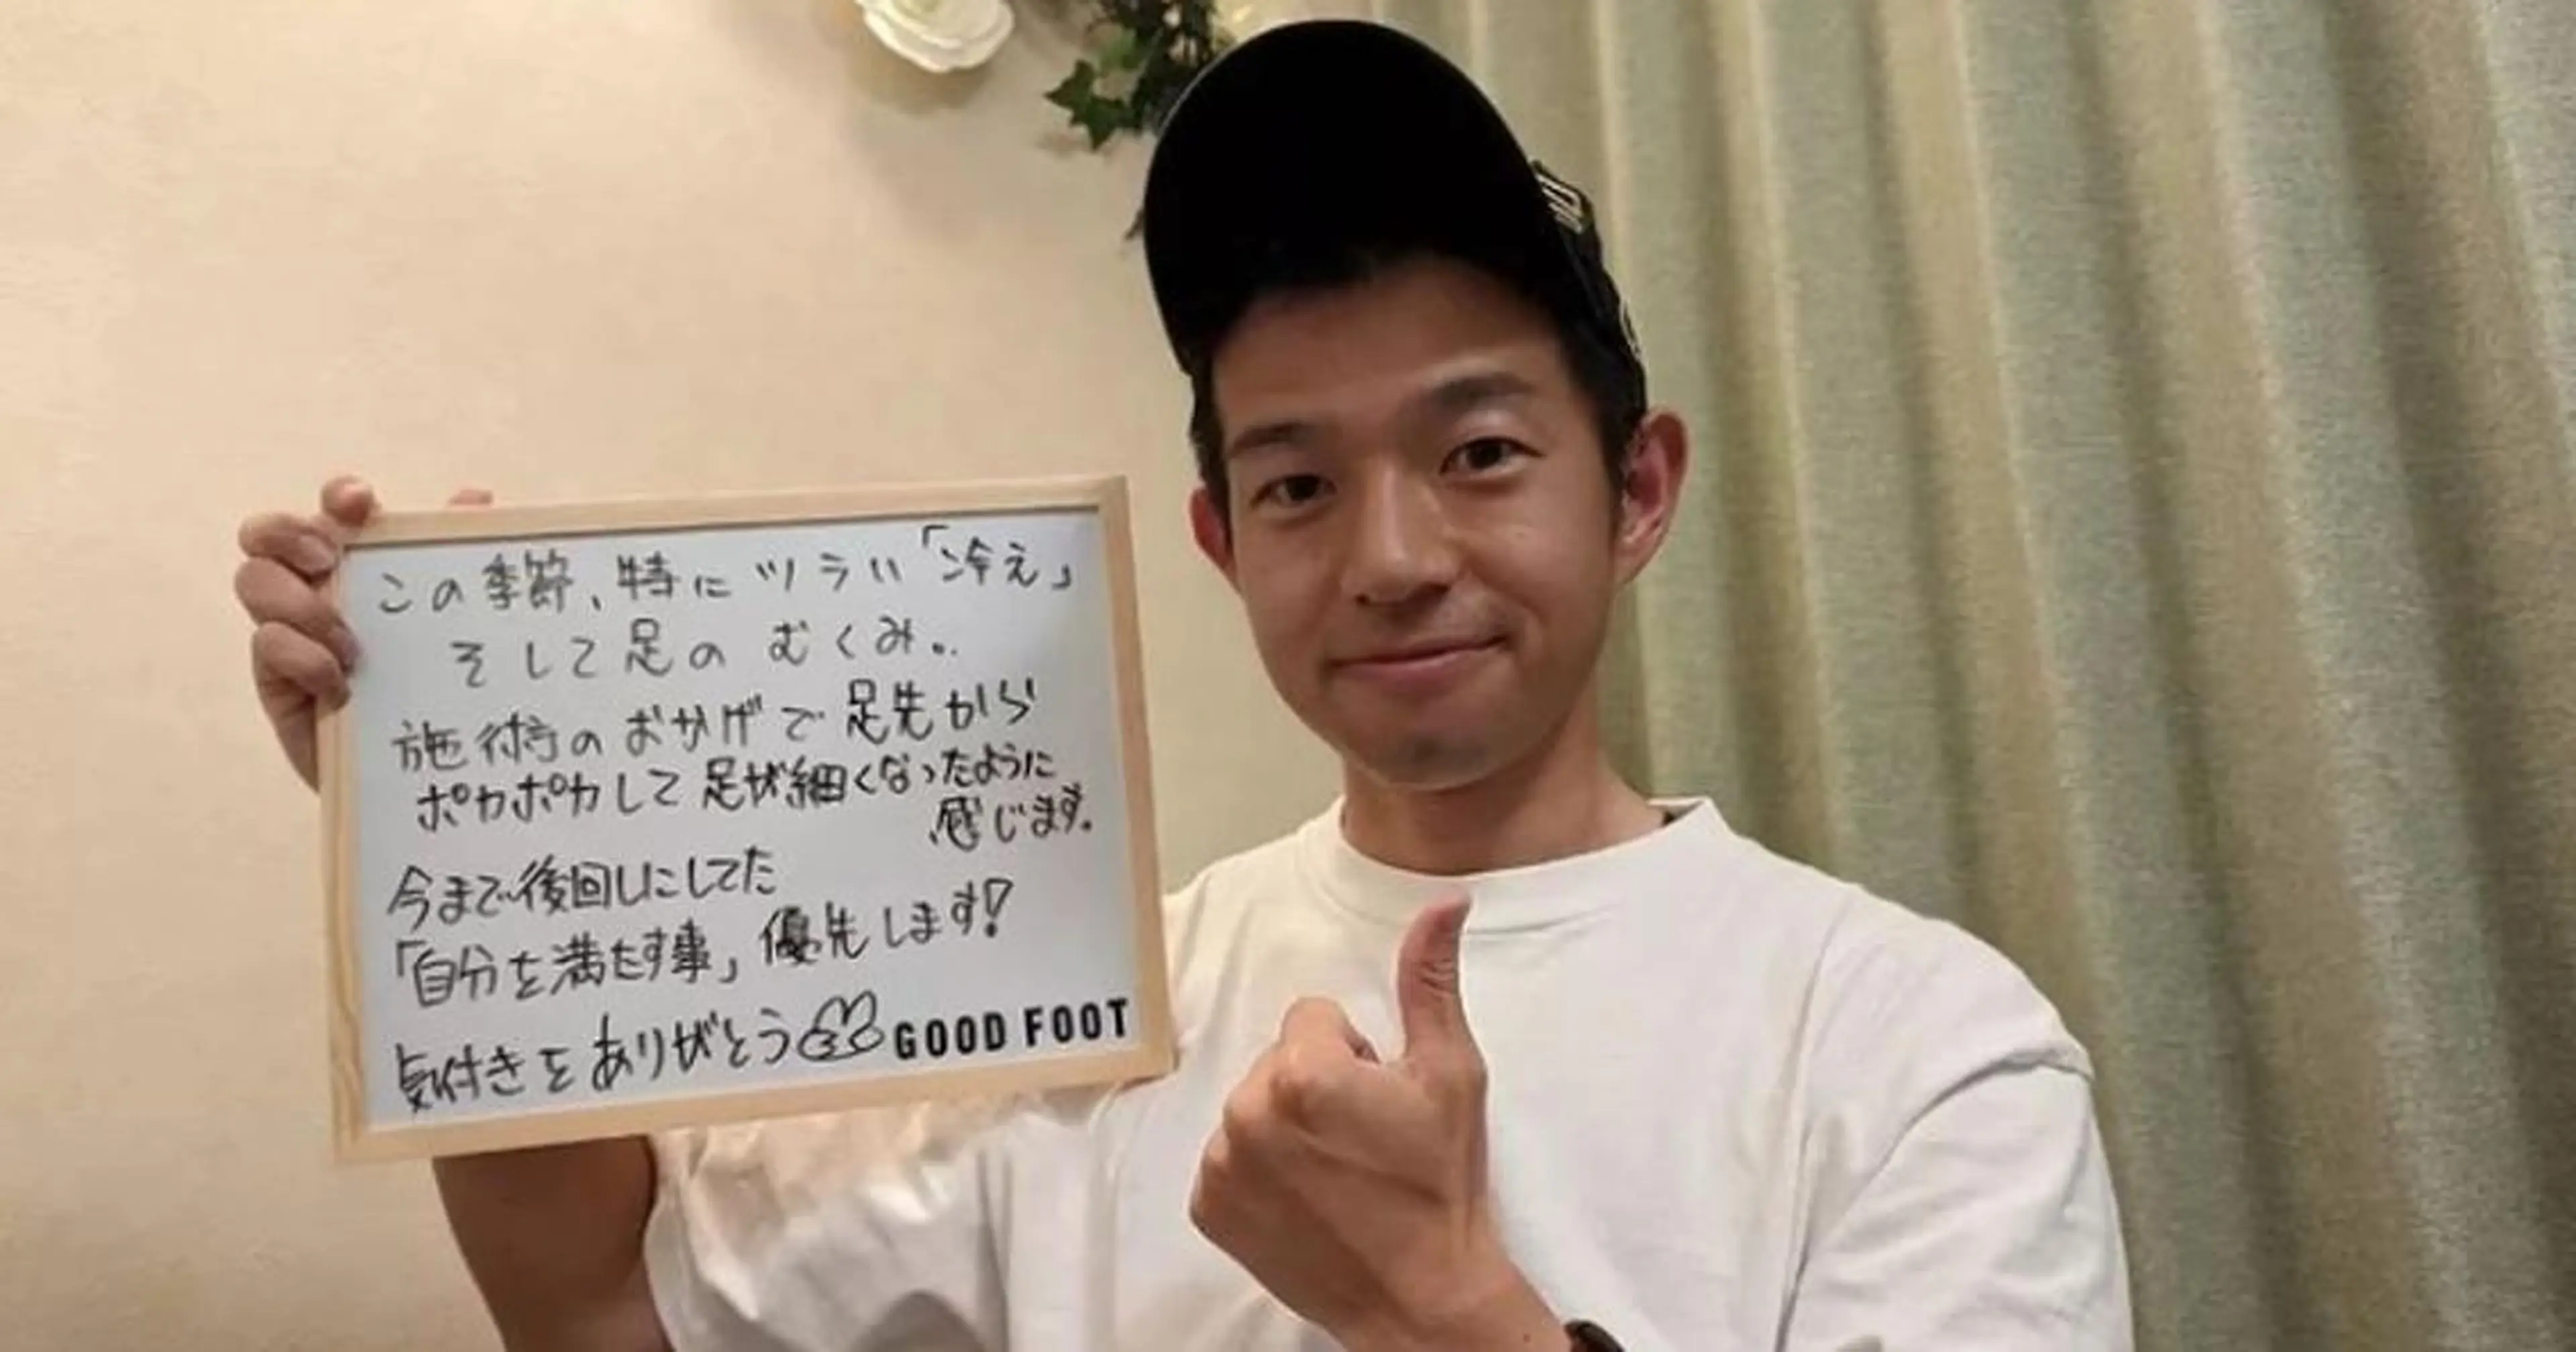 この季節、特にツラい「冷え」
そして足のむくみ。
施術のおかげで足先から
ポカポカして足が細くなったように
感じます。
今まで後回しにしてた
「自分を満たす事」優先します!
気付きをありがとう
GOOD FOOT